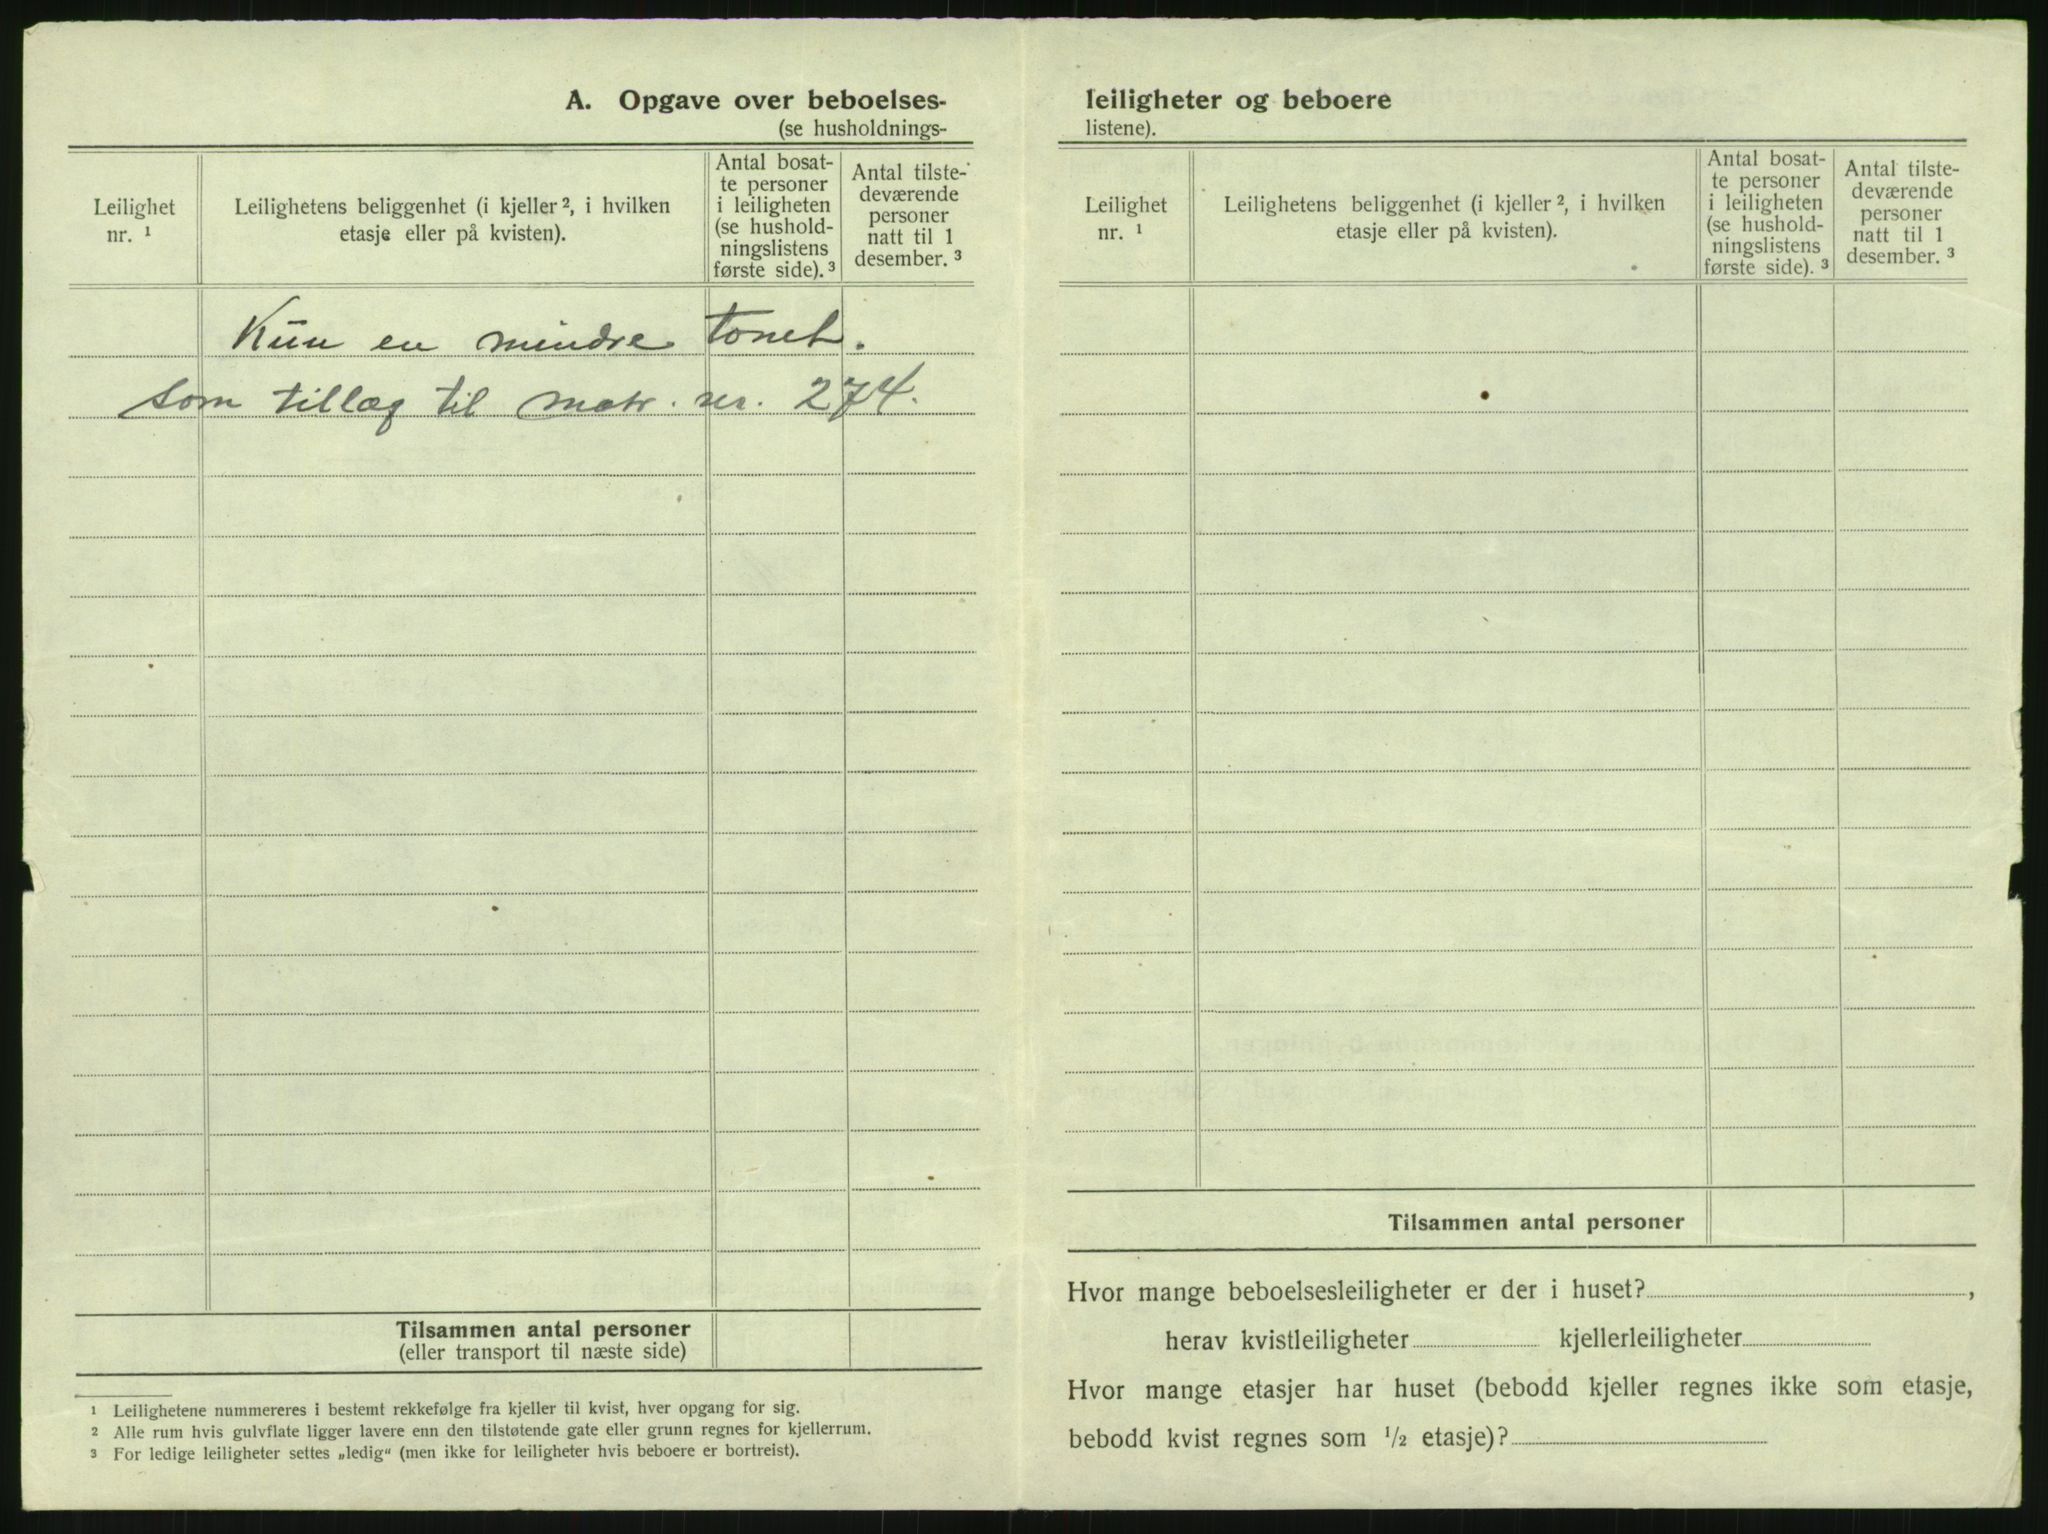 A. Opgave over beboelses-
(se husholdnings-
Leilighet
nr. ¹
Leilighetens beliggenhet (i kjeller ², i hvilken
etasje eller på kvisten).
Antal bosat-
te personer
i leiligheten
(se hushold-
ningslistens
første side). ³
Antal tilste-
deværende
personer
natt til 1
desember. ³
Kun en mindre tomt.
som tillæg til matr. nr. 274.
Tilsammen antal personer
(eller transport til næste side)
¹ Leilighetene nummereres i bestemt rekkefølge fra kjeller til kvist, hver opgang for sig.
² Alle rum hvis gulvflate ligger lavere enn den tilstøtende gate eller grunn regnes for kjellerrum.
³ For ledige leiligheter settes „ledig“ (men ikke for leiligheter hvis beboere er bortreist).
leiligheter og beboere
listene).
Leilighet
nr. ¹
Leilighetens beliggenhet (i kjeller ², i hvilken
etasje eller på kvisten).
Antal bosat-
te personer
i leiligheten
(se hushold-
ningslistens
første side). ³
Antal tilste-
deværende
personer
natt til 1
desember. ³
Tilsammen antal personer
Hvor mange beboelsesleiligheter er der i huset? ,
herav kvistleiligheter kjellerleiligheter
Hvor mange etasjer har huset (bebodd kjeller regnes ikke som etasje,
bebodd kvist regnes som ½ etasje)?